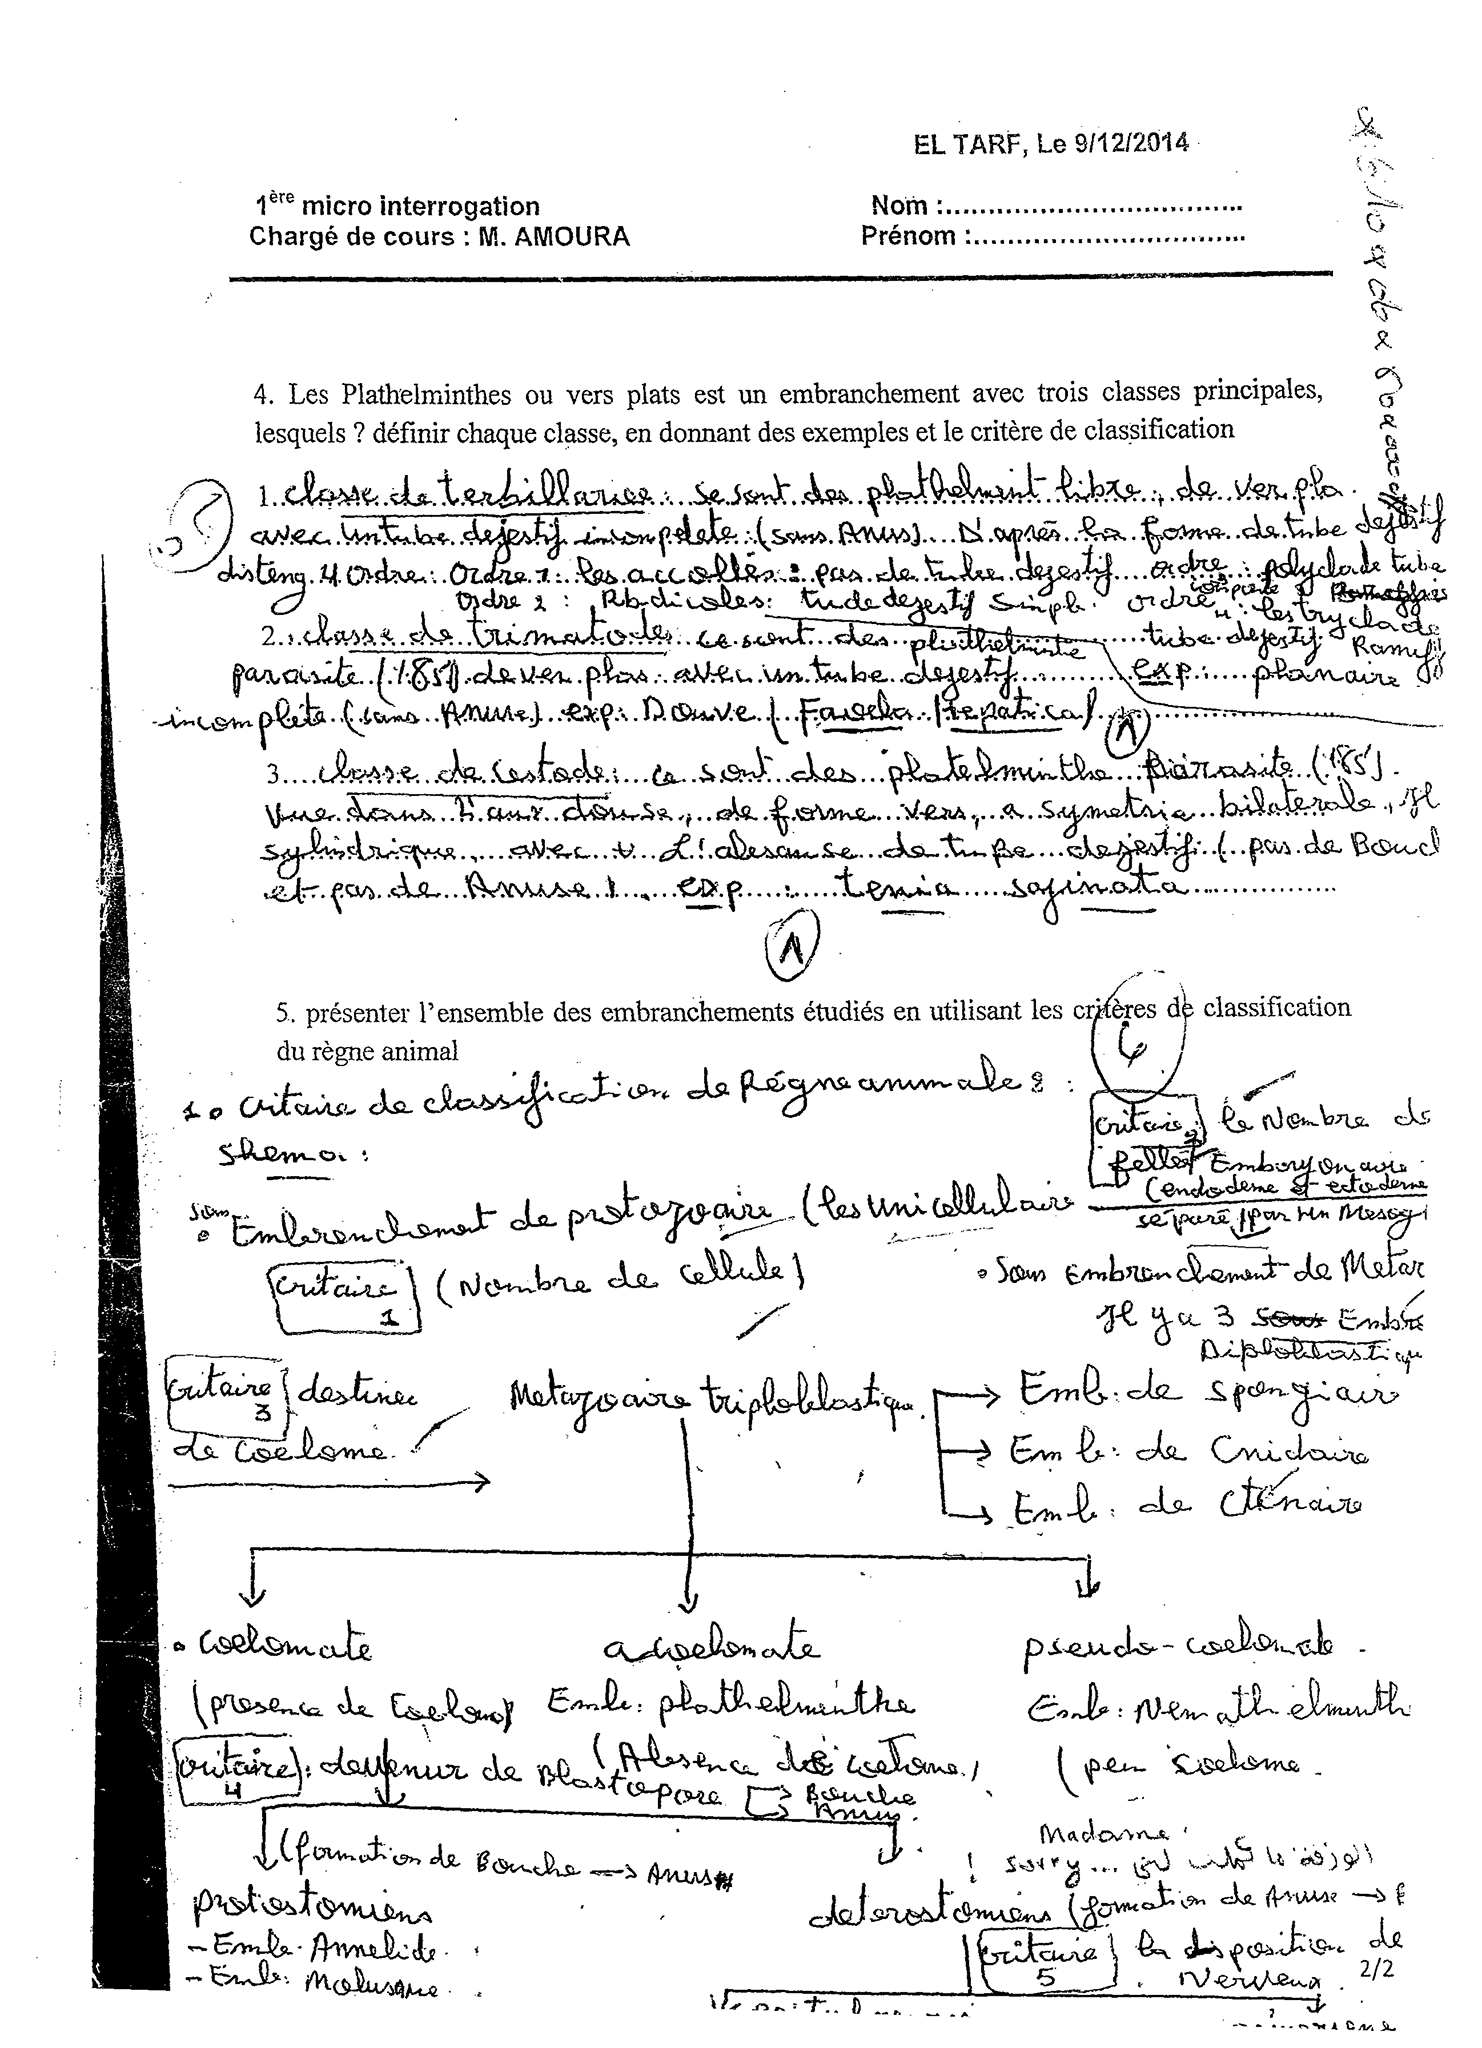 EL TARF, Le 9/12/2014
1ère micro interrogation
Nom :..................................
Chargé de cours : M. AMOURA
Prénom :................................
4. Les Plathelminthes ou vers plats est un embranchement avec trois classes principales,
lesquels ? définir chaque classe, en donnant des exemples et le critère de classification
1. classe de terbillariee : se sont des plathelmint libre, de ver pla
avec un tube dejestif incomplete (sans Anus) D'aprés la forme de tube dejestif
disteng 4 Ordre : Ordre 1 : les accollés : pas de tube dejestif ordre : polyclade tube
Ordre 2 : Rbdicoles : tude dezestif simpl. ordre 4 : les tryclade
2. classe de trimatodes ce sont des plathelminte tube dejestif Ramif
parasite (185) de ver plas avec un tube dejestif exp : planaire
incomplete (sans Anuse) exp : Douve (Facela Hepatica)
1
3. classe de Cestode : ce sont des platelminthe parasite (185).
Vue dans l'aux douse, de forme vers, a symetria bilaterale, Il
sylhidrique, avec L'abesanse de tube dejestif (pas de Bouc
et pas de Anuse). exp : tenia saginata
1
5. présenter l'ensemble des embranchements étudiés en utilisant les critères de classification
du règne animal
6
1 • Critaire de classification de Régne animale :
shema :
critaire 2 le Nombre de
fellet Emboryonaire
(endodeme et ectodeme
separé par un Mesogl
sous
• Embrenchement de protozoaire (les unicellulaire
critaire 1 (Nombre de cellule)
• Sous Embranchement de Metaz
Il y a 3 Embra
Diploblastique
critaire 3 destinee
de coelome
Metazoaire triploblastique
Emb : de spongiair
Emb : de Cnidaire
Emb : de Cténaire
• Coelomate
acoelomate
pseudo-coelomate
(presence de Coelome)
Emb : plathelminthe
Emb : Nemathelminth
(Absence de coelome)
(peu coelome
critaire 4 : devenur de Blastopore
Bouche
Anus
(formation de Bouche → Anus
Madame
! sorry...
protostomiens
deterostomiens (formation de Anuse →
- Emb. Annelide
- Emb : Molusque
critaire 5 la disposition de
Nerveux
2/2